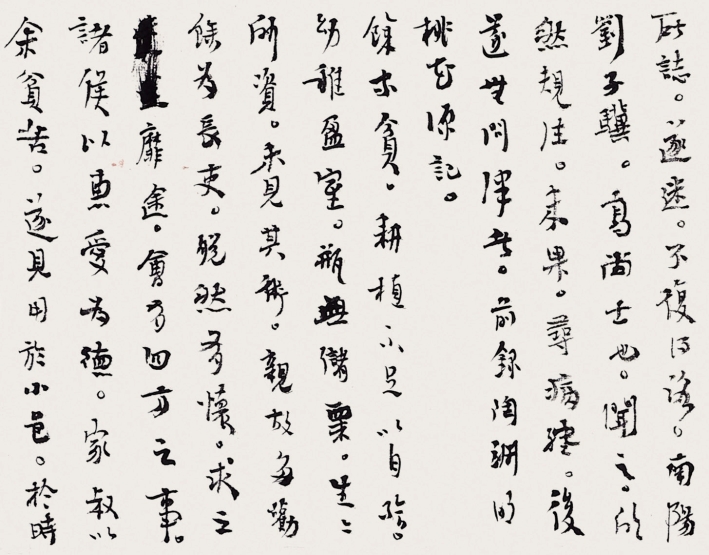 所誌。遂迷。不復得路。南陽
劉子驥。高尚士也。聞之。欣
然規往。未果。尋病終。後
遂無問津者。前録陶淵明
桃花源記。
餘家貧。耕植不足以自給。
幼稚盈室。瓶無儲粟。生々
所資。未見其術。親故多勸
餘為長吏。脱然有懷。求之
靡途。會有四方之事。
諸侯以惠愛為德。家叔以
余貧苦。遂見用於小邑。於時